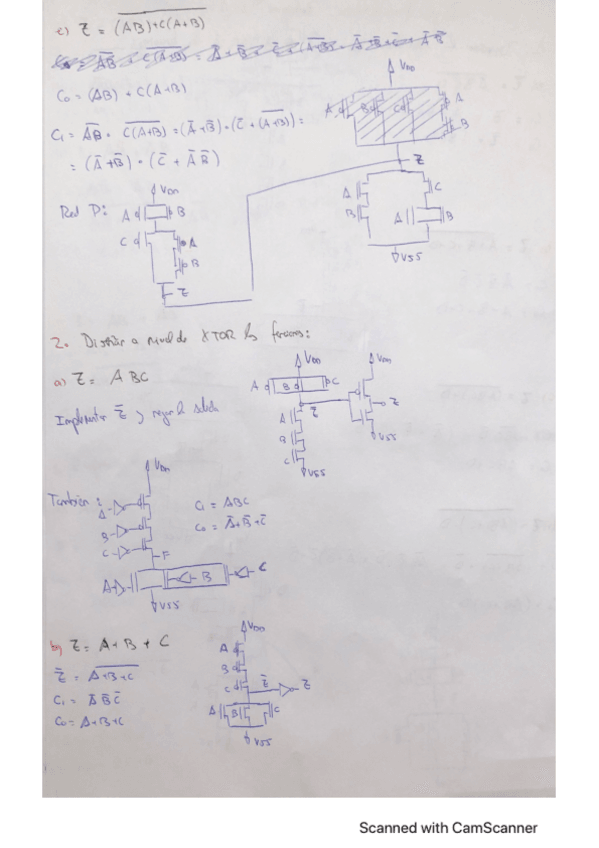 c) Z = \overline{(AB)+C(A+B)}
C₀ = (AB) + C(A+B)
C₁ = \overline{AB} · \overline{C(A+B)} = (Ā+B̄)·(C̄ + \overline{(A+B)}) =
= (Ā+B̄)·(C̄ + ĀB̄)
VDD
A B C A
B
Z
A C
B A B
VSS
Red P:
VDD
A B
C A
B
Z
2. Diseñar a nivel de XTOR las funciones:
a) Z = ABC
Implementar Z̄ y negar la salida
VDD
A B C
Z̄
A
B
C
VSS
VDD
Z
VSS
También:
VDD
A
B
C F
A B C
VSS
C₁ = ABC
C₀ = Ā+B̄+C̄
b) Z = A+B+C
Z̄ = \overline{A+B+C}
C₁ = ĀB̄C̄
C₀ = A+B+C
VDD
A
B
C Z̄ Z
A B C
VSS
Scanned with CamScanner